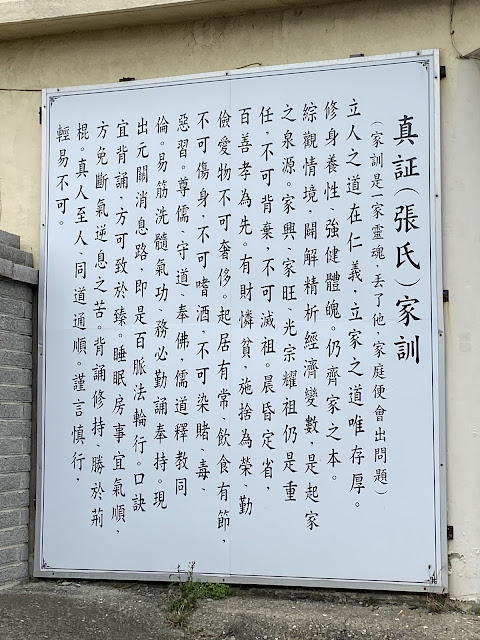 真証（張氏）家訓
（家訓是一家靈魂，丟了他，家庭便會出問題）
立人之道在仁義，立家之道唯存厚。
修身養性，強健體魄。仍齊家之本。
綜觀情境，闢解精析經濟變數，是起家
之泉源。家興、家旺、光宗耀祖仍是重
任，不可背棄，不可滅祖。晨昏定省，
百善孝為先。有財憐貧，施捨為榮、勤
儉愛物不可奢侈。起居有常，飲食有節，
不可傷身，不可嗜酒，不可染賭、毒、
惡習。尊儒、守道、奉佛，儒道釋教同
倫。易筋洗髓氣功、務必勤誦奉持。現
出元關消息路，即是百脈法輪行。口訣
宜背誦，方可致於臻。睡眠房事宜氣順，
方免斷氣逆息之苦。背誦修持、勝於荊
棍。真人至人、同道通順。謹言慎行，
輕易不可。